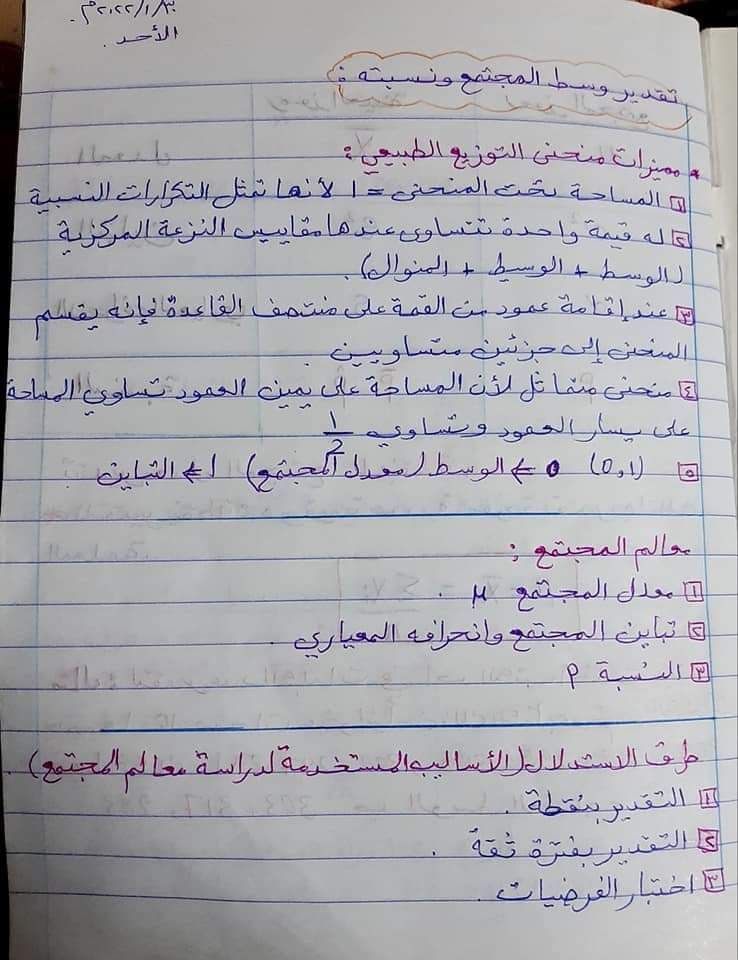 ٢٠٢٢/١/٣٠م.
الأحد.
تقدير وسط المجتمع ونسبته:
* مميزات منحنى التوزيع الطبيعي:
١ المساحة تحت المنحنى = 1 لأنها تمثل التكرارات النسبية
٢ له قيمة واحدة تتساوى عندها مقاييس النزعة المركزية
(الوسط + الوسيط + المنوال).
٣ عند إقامة عمود من القمة على منتصف القاعدة فإنه يقسم
المنحنى إلى جزئين متساويين.
٤ منحنى متماثل لأن المساحة على يمين العمود تساوي المساحة
على يسار العمود وتساوي 1/2
٥ (0,1) 0 ⇐ الوسط (معدل المجتمع) 1 ⇐ التباين
معالم المجتمع:
١ معدل المجتمع μ.
٢ تباين المجتمع وانحرافه المعياري.
٣ النسبة P
طرق الاستدلال (الأساليب المستخدمة لدراسة معالم المجتمع).
١ التقدير بنقطة.
٢ التقدير بفترة ثقة.
٣ اختبار الفرضيات.